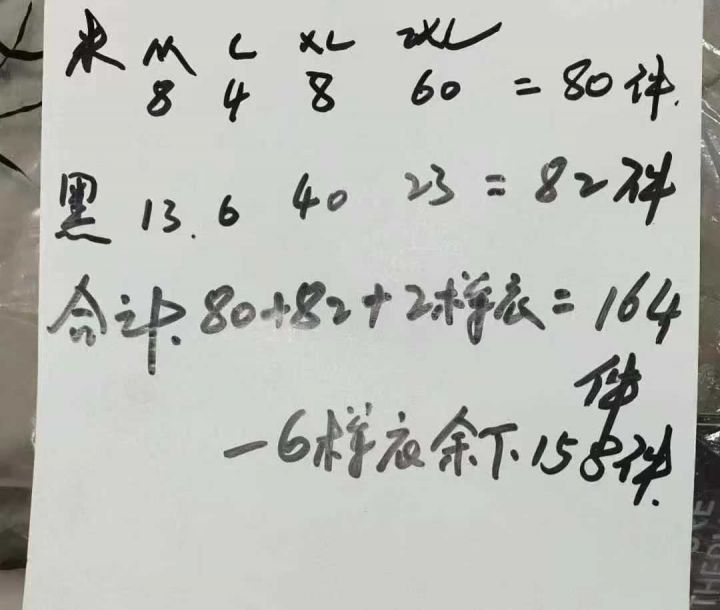 米 M L XL 2XL
8 4 8 60 = 80件.
黑 13. 6 40 23 = 82件
合计. 80+82+2样衣 = 164
件
-6样衣余下.158件.
THEDNE